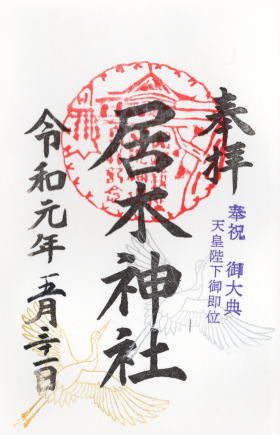 奉拝
奉祝 御大典
天皇陛下御即位
居木神社
令和元年五月二十一日